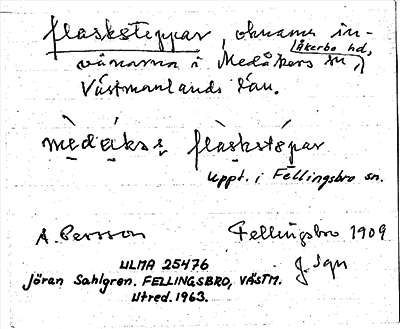 fläsksteppar, öknamn in-
vånarna i Medåkers sn,
Åkerbo hd,
Västmanlands län.
mèdåks flàskstépar
uppt. i Fellingsbro sn.
A. Persson Fellingsbro 1909
ULMA 25476 J. Sgn
Jöran Sahlgren. FELLINGSBRO, VÄSTM.
Utred. 1963.